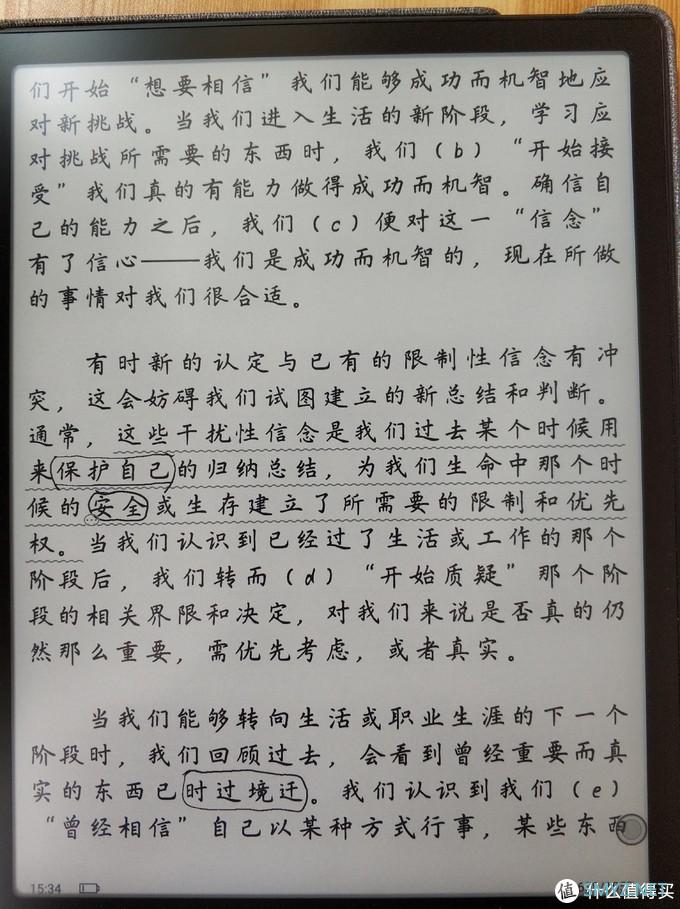 们开始“想要相信”我们能够成功而机智地应
对新挑战。当我们进入生活的新阶段，学习应
对挑战所需要的东西时，我们（b）“开始接
受”我们真的有能力做得成功而机智。确信自
己的能力之后，我们（c）便对这一“信念”
有了信心——我们是成功而机智的，现在所做
的事情对我们很合适。
有时新的认定与已有的限制性信念有冲
突，这会妨碍我们试图建立的新总结和判断。
通常，这些干扰性信念是我们过去某个时候用
来保护自己的归纳总结，为我们生命中那个时
候的安全或生存建立了所需要的限制和优先
权。当我们认识到已经过了生活或工作的那个
阶段后，我们转而（d）“开始质疑”那个阶
段的相关界限和决定，对我们来说是否真的仍
然那么重要，需优先考虑，或者真实。
当我们能够转向生活或职业生涯的下一个
阶段时，我们回顾过去，会看到曾经重要而真
实的东西已时过境迁。我们认识到我们（e）
“曾经相信”自己以某种方式行事，某些东西
15:34
值 什么值得买